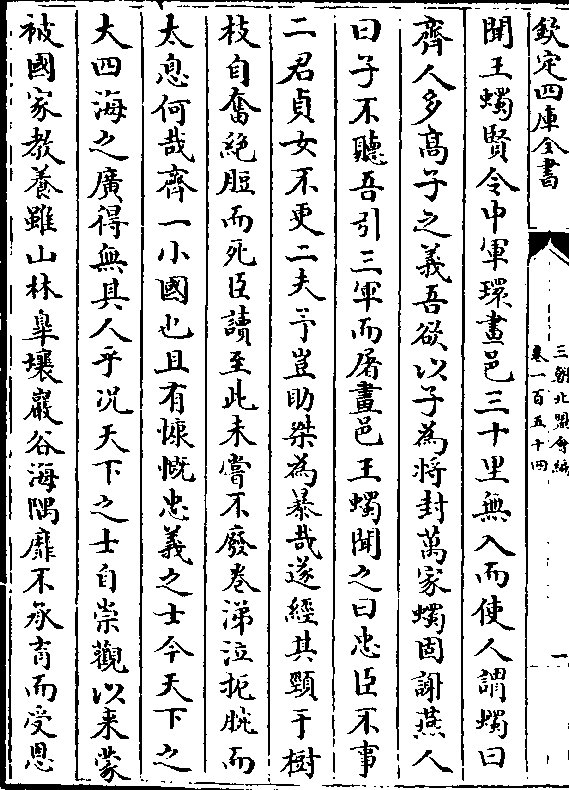 欽定四庫全書
三朝北盟會編
卷一百五十四
一
聞王蠋賢令中軍環畫邑三十里無入而使人謂蠋曰
齊人多髙子之義吾欲以子為將封萬家蠋固謝燕人
曰子不聽吾引三軍而屠畫邑王蠋聞之曰忠臣不事
二君貞女不更二夫予豈助桀為暴哉遂經其頸于樹
枝自奮絶脰而死臣讀至此未嘗不廢卷涕泣扼腕而
太息何哉齊一小國也且有慷慨忠義之士今天下之
大四海之廣得無其人乎况天下之士自崇觀以来蒙
被國家教養雖山林臯壤巖谷海隅靡不承育而受恩